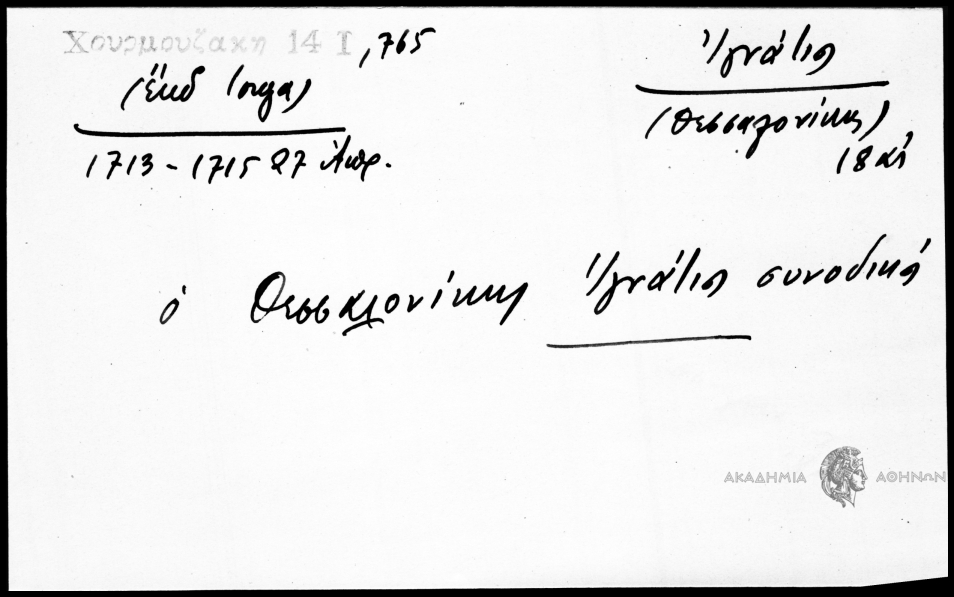 Χουρμουζακη 14 I ,765
(ἔκδ Ιοργα)
1713 - 1715 27 Ἀπρ.
Ἰγνάτιος
(Θεσσαλονίκης)
18 αἰ
ὁ Θεσσαλονίκης Ἰγνάτιος συνοδικά
ΑΚΑΔΗΜΙΑ ΑΘΗΝΩΝ